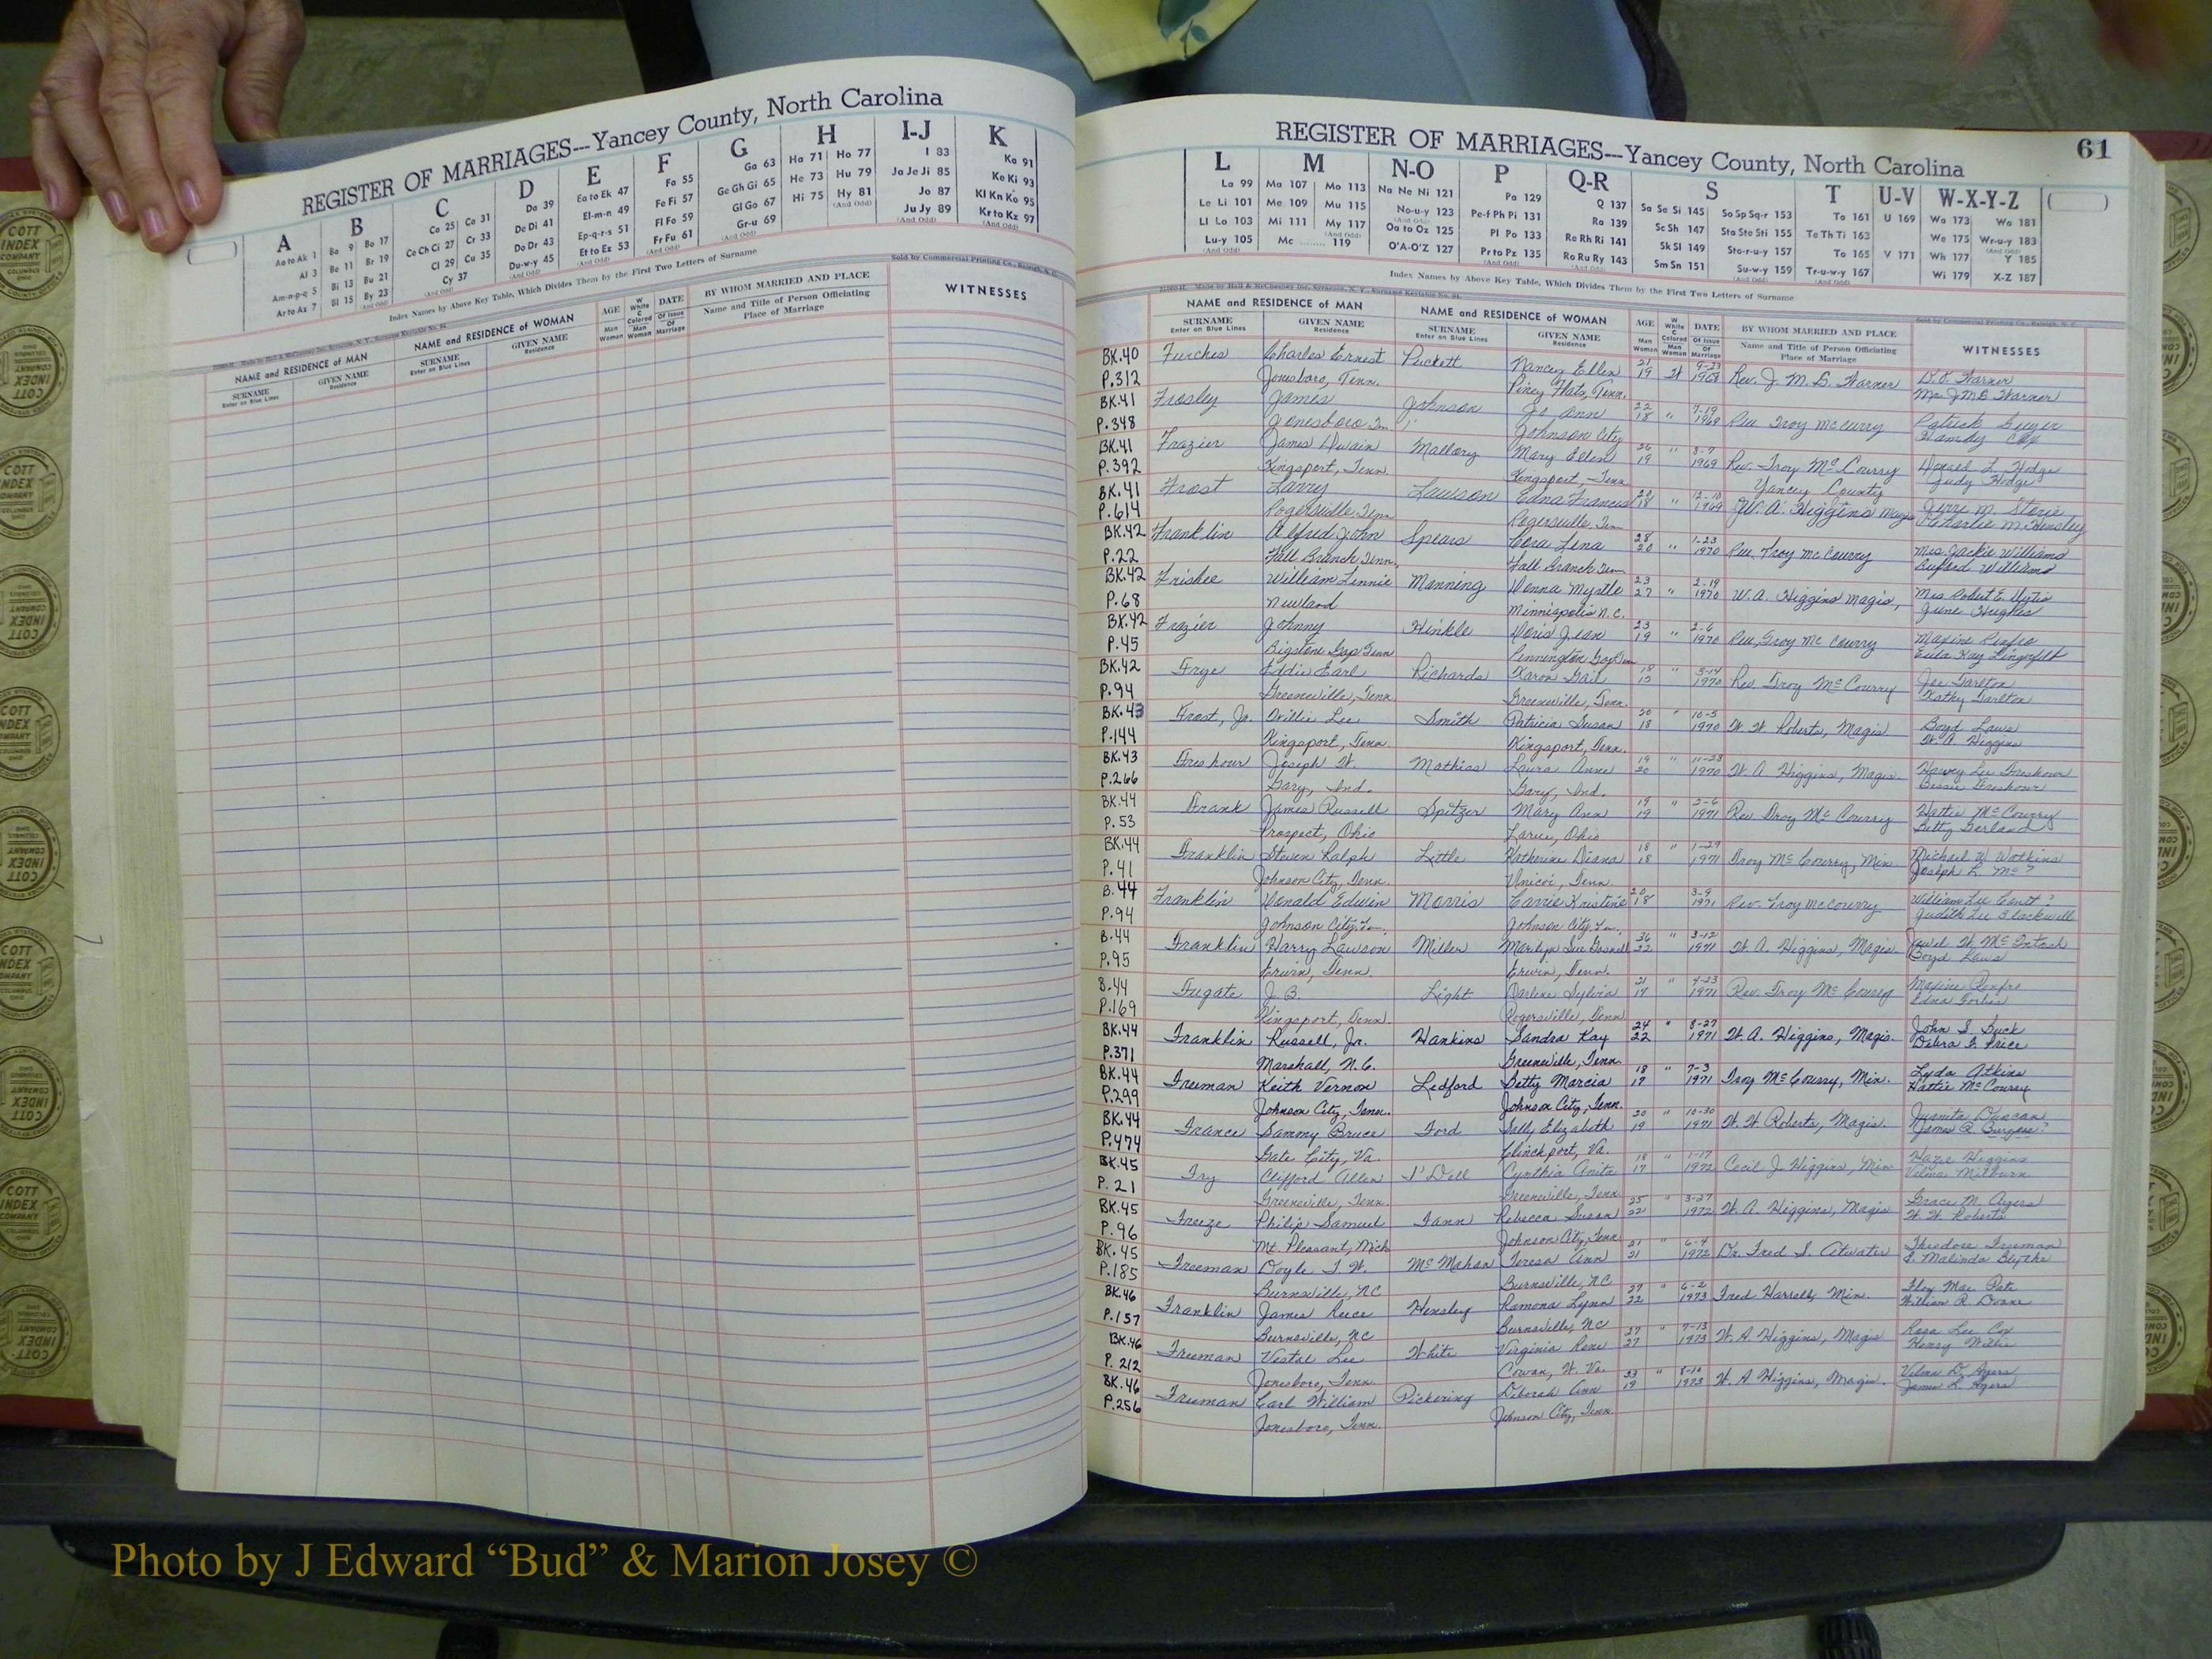 REGISTER OF MARRIAGES---Yancey County, North Carolina
A B C D E F G H I-J K
Aa to Ak 1 Ba 9 Bo 17 Ca 25 Co 31 Da 39 Ea to Ek 47 Fa 55 Ga 63 Ha 71 Ho 77 I 83 Ka 91
Al 3 Be 11 Br 19 Ce Ch Ci 27 Cr 33 De Di 41 El-m-n 49 Fe Fi 57 Ge Gh Gi 65 He 73 Hu 79 Ja Je Ji 85 Ke Ki 93
Am-n-p-q 5 Bi 13 Bu 21 Cl 29 Cu 35 Do Dr 43 Ep-q-r-s 51 Fl Fo 59 Gl Go 67 Hi 75 Hy 81 Jo 87 Kl Kn Ko 95
Ar to Az 7 Bl 15 By 23 Cy 37 Du-w-y 45 Et to Ez 53 Fr Fu 61 Gr-u 69 Ju Jy 89 Kr to Kz 97
Index Names by Above Key Table, Which Divides Them by the First Two Letters of Surname
Sold by Commercial Printing Co., Raleigh, N. C.
NAME and RESIDENCE of MAN NAME and RESIDENCE of WOMAN AGE W White C Colored DATE BY WHOM MARRIED AND PLACE WITNESSES
SURNAME Enter on Blue Lines GIVEN NAME Residence SURNAME Enter on Blue Lines GIVEN NAME Residence Man Woman Man Woman Of Issue Of Marriage Name and Title of Person Officiating Place of Marriage
REGISTER OF MARRIAGES---Yancey County, North Carolina 61
L M N-O P Q-R S T U-V W-X-Y-Z
La 99 Ma 107 Mo 113 Na Ne Ni 121 Pa 129 Q 137 Sa Se Si 145 So Sp Sq-r 153 Ta 161 U 169 Wa 173 Wo 181
Le Li 101 Me 109 Mu 115 No-u-y 123 Pe-f Ph Pi 131 Ra 139 Sc Sh 147 Sta Ste Sti 155 Te Th Ti 163 We 175 Wr-u-y 183
Ll Lo 103 Mi 111 My 117 Oa to Oz 125 Pl Po 133 Re Rh Ri 141 Sk Sl 149 Sto-r-u-y 157 To 165 V 171 Wh 177 Y 185
Lu-y 105 Mc 119 O'A-O'Z 127 Pr to Pz 135 Ro Ru Ry 143 Sm Sn 151 Su-w-y 159 Tr-u-w-y 167 Wi 179 X-Z 187
Index Names by Above Key Table, Which Divides Them by the First Two Letters of Surname
NAME and RESIDENCE of MAN NAME and RESIDENCE of WOMAN AGE W White C Colored DATE BY WHOM MARRIED AND PLACE WITNESSES
SURNAME Enter on Blue Lines GIVEN NAME Residence SURNAME Enter on Blue Lines GIVEN NAME Residence Man Woman Man Woman Of Issue Of Marriage Name and Title of Person Officiating Place of Marriage
BK.40 Furches Charles Ernest Puckett Nancy Ellen 21 19 W 9-23 1968 Rev. J. M. B. Warner Warner
P.312 Jonesboro, Tenn. Piney Flats, Tenn. Mrs. J M B Warner
BK.41 Frosley James Johnson Jo Ann 22 18 " 7-19 1969 Rev Troy McCurry Patrick
P.348 Jonesboro Johnson City
BK.41 Frazier James Mallory Mary Ellen 19 " 1969 Rev. Troy McCourry Donald L. Hodge
P.392 Kingsport, Tenn. Kingsport, Tenn Yancey County Judy Hodge
BK.41 Frost Larry Lawson Edna Francis 18 " 12-10 1969 W. A. Higgins Magis
P.614 Rogersville, Tenn Rogersville, Tenn Hensley
BK.42 Franklin Alfred John Spears Cora Lena 28 20 " 1-23 1970 Rev. Troy McCourry Mrs. Jackie Williams
P.22 Fall Branch Tenn. Fall Branch Tenn Buford Williams
BK.42 Frisbee William Linnie Manning Donna Myrtle 23 27 " 2-19 1970 W. A. Higgins magis, Mrs Robert E.
P.68 Newland Minneapolis N.C. June Hughes
BK.42 Frazier Johnny Hinkle Doris Jean 23 19 " 2-6 1970 Rev. Troy McCourry Maxine Renfro
P.45 Bigstone Gap Tenn Pennington Gap Eula Kay Lingerfelt
BK.42 Frye Eddie Earl Richards Karon Gail 18 15 " 3-14 1970 Rev. Troy McCourry Joe Tarlton
P.94 Greeneville, Tenn. Greeneville, Tenn. Kathy Tarlton
BK.43 Frost, Jr. Willie Lee Smith Patricia Susan 18 " 10-5 1970 W. W. Roberts, Magis. Boyd Laws
P.144 Kingsport, Tenn. Kingsport, Tenn. W. A. Higgins
BK.43 Freshour Joseph W. Mathias Laura Anne 19 20 " 11-23 1970 W. A. Higgins, Magis. Harvey Lee Freshour
P.266 Gary, Ind. Gary, Ind. Bessie Freshour
BK.44 Frank James Russell Spitzer Mary Ann 19 19 " 2-6 1971 Rev. Troy McCourry Hattie McCourry
P.53 Prospect, Ohio Larue, Ohio Betty Garland
BK.44 Franklin Steven Ralph Little Katherine Diana 18 18 " 1-29 1971 Troy McCourry, Min Michael W. Watkins
P.41 Johnson City, Tenn. Unicoi, Tenn. Joseph L. Mc?
B.44 Franklin Donald Edwin Morris Carrie Kristine 20 18 3-9 1971 Rev. Troy McCourry William Lee ?
P.94 Johnson City, Johnson City, Judith Lee Blackwell
B.44 Franklin Harry Lawson Miller Marilyn Sue 36 22 " 3-12 1971 W. A. Higgins, Magis. W. McIntosh
P.95 Erwin, Tenn. Erwin, Tenn. Boyd Laws
B.44 Fugate J. B. Light Darlene Sylvia 21 19 " 4-23 1971 Rev. Troy McCourry Maxine Renfro
P.169 Kingsport, Tenn. Rogersville, Tenn Edna Forbes
BK.44 Franklin Russell, Jr. Hankins Sandra Kay 24 22 " 8-27 1971 W. A. Higgins, Magis. John S. Suck
P.371 Marshall, N.C. Greeneville, Tenn. Debra Price
BK.44 Freeman Keith Vernon Ledford Betty Marcia 18 17 " 7-3 1971 Troy McCourry, Min. Lyda Atkins
P.299 Johnson City, Tenn. Johnson City, Tenn. Hattie McCourry
BK.44 France Sammy Bruce Ford Sally Elizabeth 20 19 " 10-30 1971 W. W. Roberts, Magis. Juanita Duncan
P.474 Gate City, Va. Clinchport, Va. James R. Burgess?
BK.45 Fry Clifford Allen I'Dell Cynthia Anita 18 17 " 1-17 1972 Cecil J. Higgins, Min Higgins
P.21 Greeneville, Tenn. Greeneville, Tenn. Vilma Milburn
BK.45 Freeze Philip Samuel Fann Rebecca Susan 25 22 " 3-27 1972 W. A. Higgins, Magis Grace M. Ayers
P.96 Mt. Pleasant, Mich Johnson City, Tenn W. W. Roberts
BK.45 Freeman Doyle J. W. McMahan Teresa Ann 21 21 " 6-4 1972 Dr. Fred S. Atwater Theodore Freeman
P.185 Burnsville, NC Burnsville, NC S. Malinda Blythe
BK.46 Franklin James Reece Hensley Ramona Lynn 27 22 " 6-2 1973 Fred Harrell, Min. Floy Mae Pate
P.157 Burnsville, NC Burnsville, NC William R. Doane
BK.46 Freeman Vestal Lee White Virginia Rene 27 27 " 7-13 1973 W. A Higgins, Magis Rosa Lee Cox
P.212 Jonesboro, Tenn. Cowan, W. Va. Henry Willis
BK.46 Freeman Earl William Pickering Deborah Ann 23 19 " 8-10 1973 W. A Higgins, Magis. Vilma D. Ayers
P.256 Jonesboro, Tenn. Johnson City, Tenn. James L. Ayers
Photo by J Edward “Bud” & Marion Josey ©